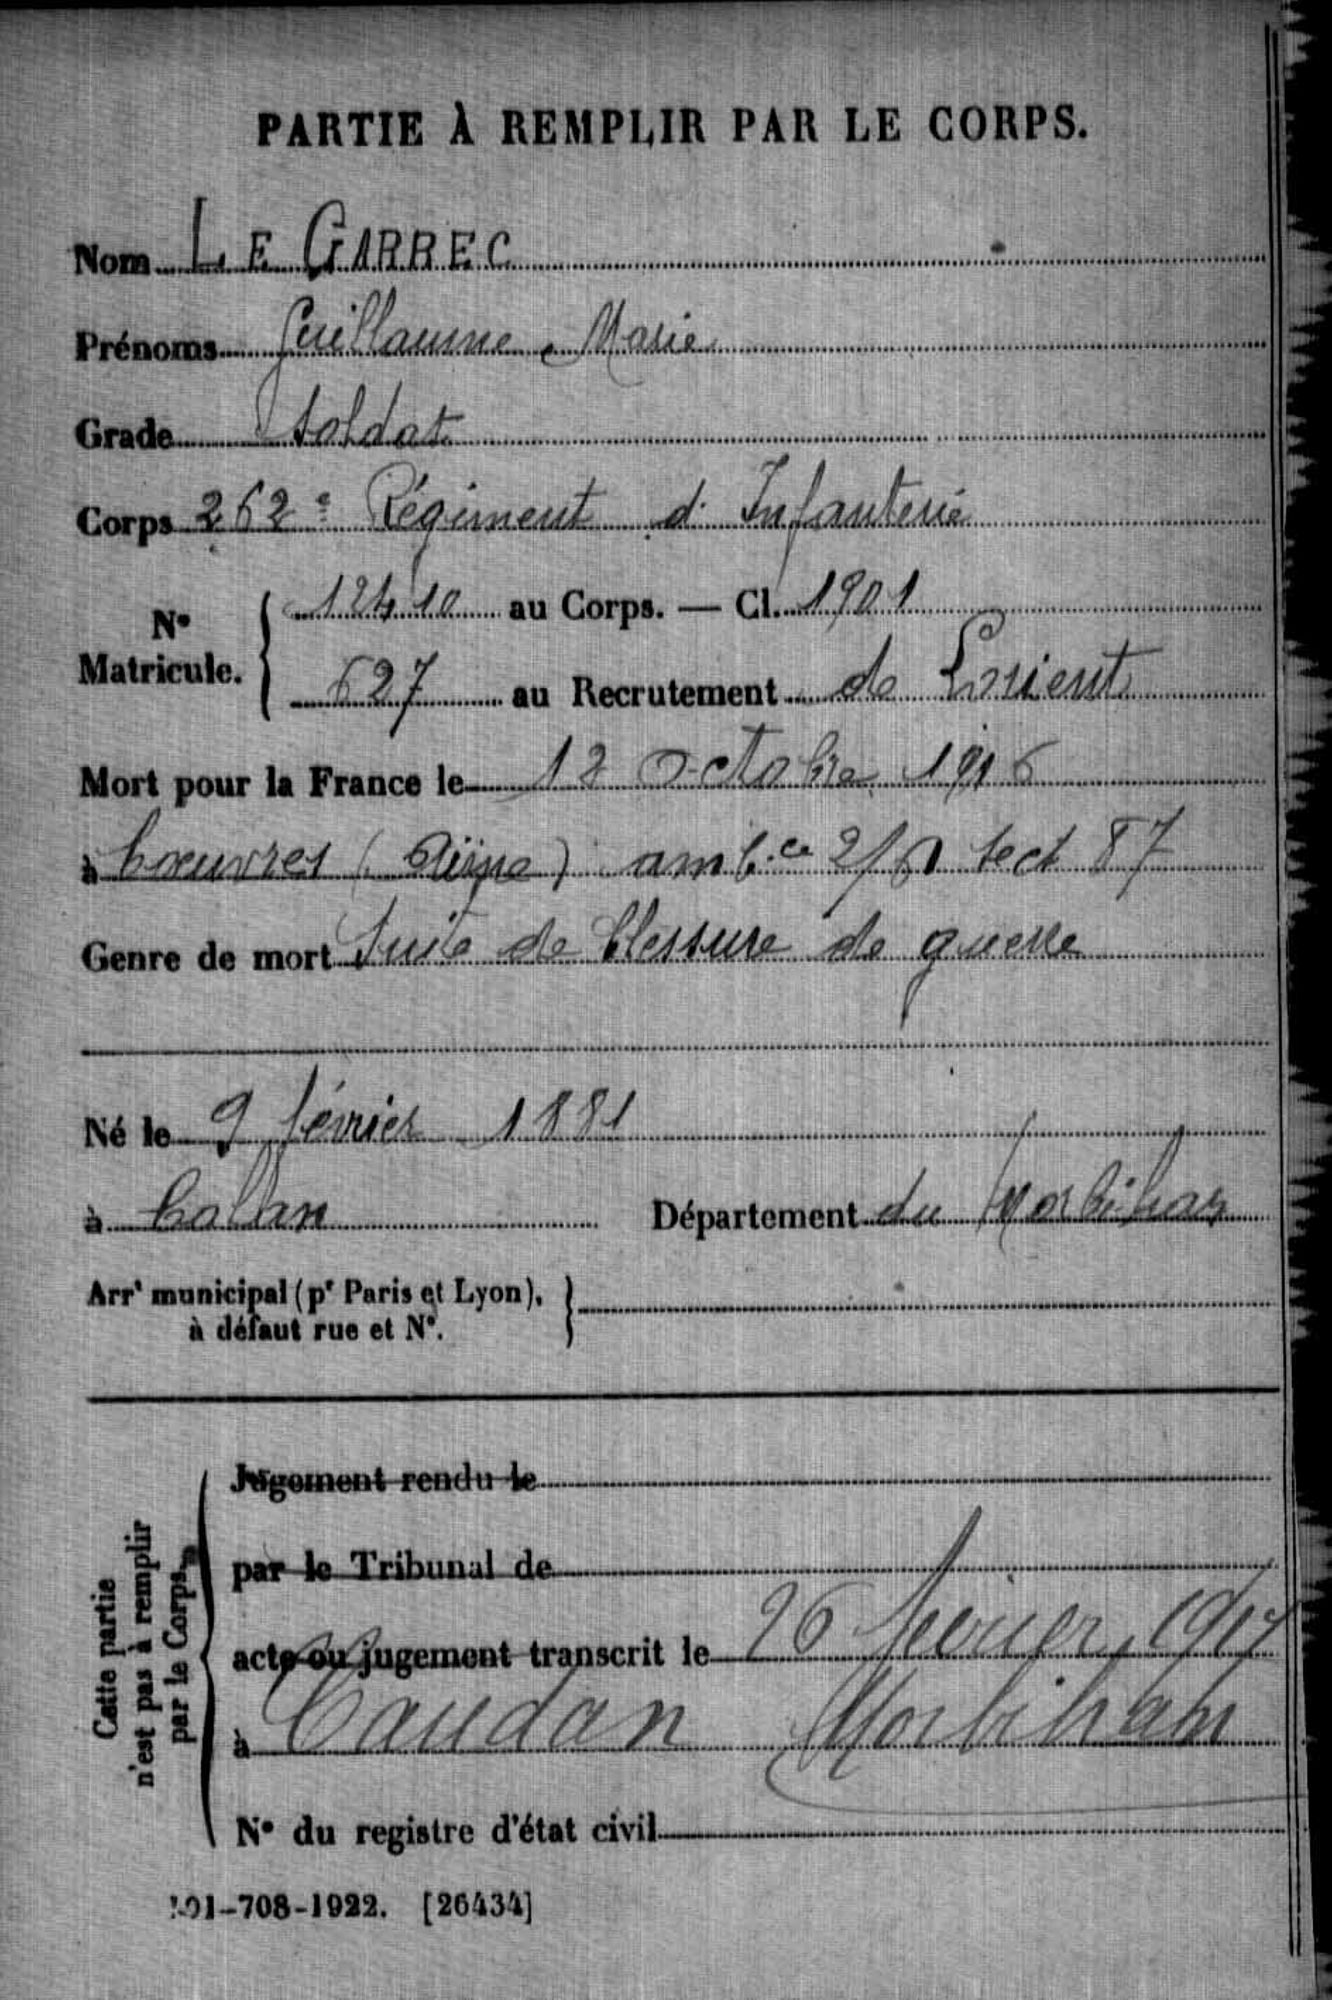 PARTIE À REMPLIR PAR LE CORPS.
Nom LE GARREC
Prénoms Guillaume, Marie
Grade Soldat
Corps 262e Régiment d'Infanterie
N° Matricule. 12410 au Corps. — Cl. 1901
627 au Recrutement de Lorient
Mort pour la France le 12 octobre 1916
à Coeuvres (Aisne) amb.ce 2/61 sect 87
Genre de mort Suite de blessure de guerre
Né le 9 février 1881
à Calan Département du Morbihan
Arrt municipal (pr Paris et Lyon),
à défaut rue et N°.
Cette partie
n'est pas à remplir
par le Corps.
Jugement rendu le
par le Tribunal de
acte ou jugement transcrit le 26 février 1917
à Caudan Morbihan
N° du registre d'état civil
-708-1922. [26434]